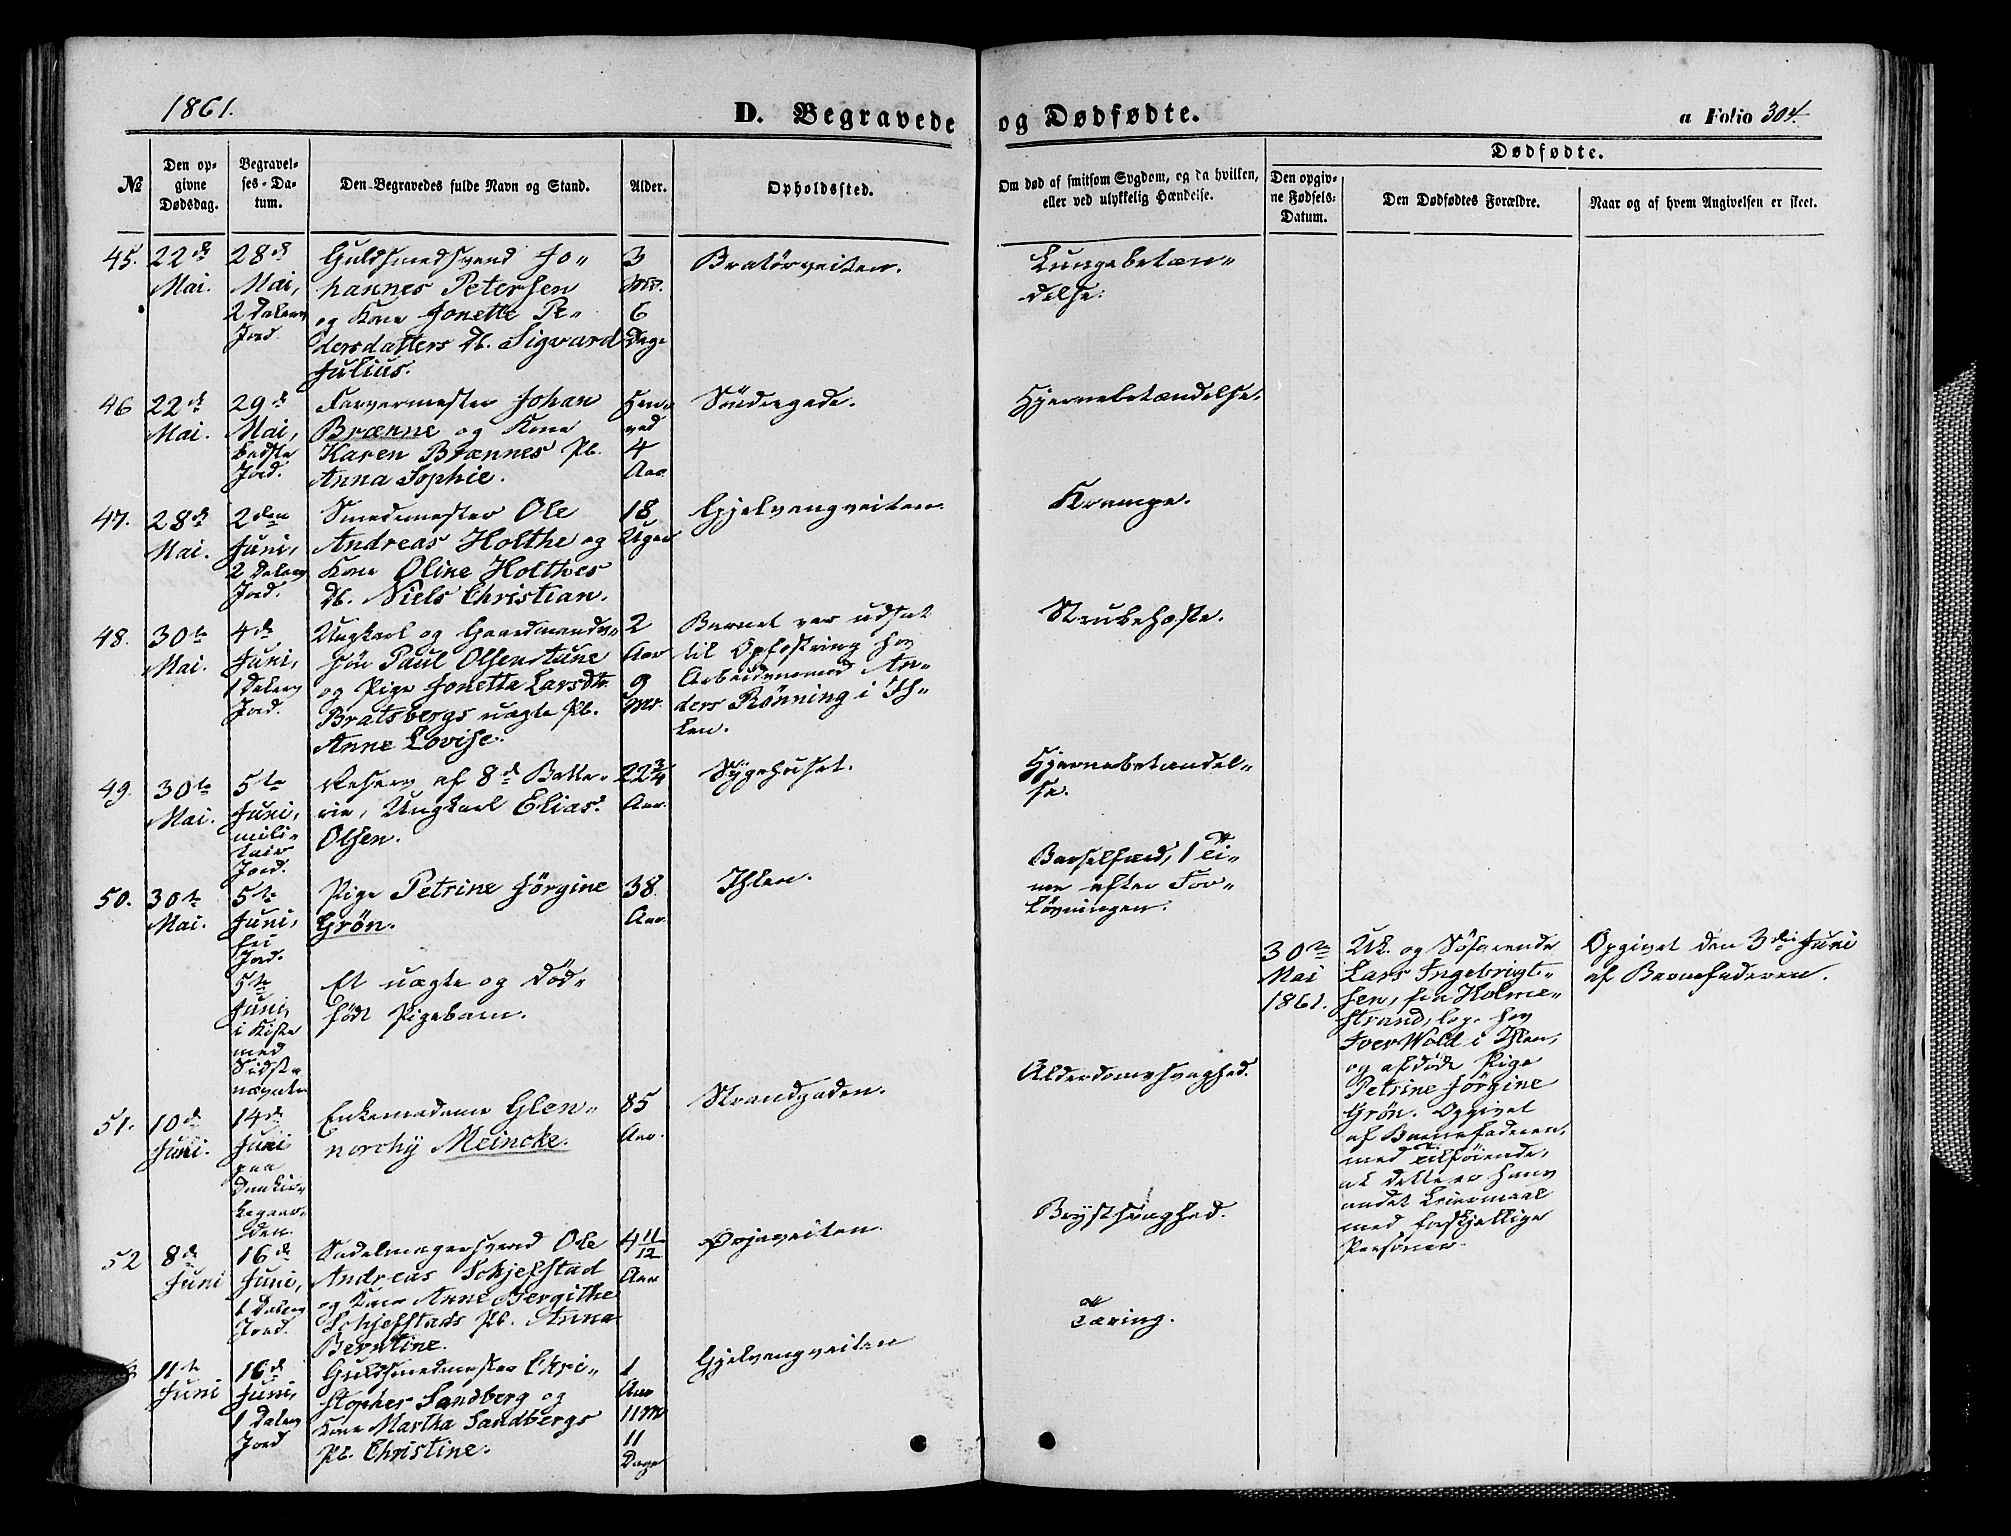 1861.
D. Begravede og Dødfødte.
a Folio 304.
№
Den opgivne Dødsdag.
Begravelses-Datum.
Den Begravedes fulde Navn og Stand.
Alder.
Opholdssted.
Om død af smitsom Sygdom, og da hvilken,
eller ved ulykkelig Hændelse.
Dødfødte.
Den opgivne Fødsels-Datum.
Den Dødfødtes Forældre.
Naar og af hvem Angivelsen er skeet.
45.
22de
Mai.
28de
Mai,
2 Dalers
Jord.
Guldsmedsvend Jo-
hannes Petersen
og Kone Jonette Pe-
dersdatters Db. Sigvard
Julius.
3
Mdr.
6
Dage
Bratørveiten.
Lungebetæn-
delse.
46
22de
Mai.
29de
Mai,
bedste
Jord.
Farvermester Johan
Brænne og Kone
Karen Brænnes Pb.
Anna Sophie.
Hen-
ved
4
Aar
Söndregade.
Hjernebetændelse.
47.
28de
Mai.
2den
Juni,
2 Dalers
Jord.
Smedemester Ole
Andreas Holthe og
Kone Oline Holthes
Db. Niels Christian.
18
Uger
Gjelvangveiten.
Krampe.
48.
30te
Mai.
4de
Juni,
1 Dalers
Jord.
Ungkarl og Gaardmands-
sön Paul Olsen Tune
og Pige Jonetta Larsdtr.
Bratsbergs uægte Pb.
Anne Lovise.
2
Aar
9
Mr.
Barnet var udsat
til Opfostring hos
Arbeidsmand An-
ders Rønning i Ih-
len.
Strubehoste.
49.
30te
Mai.
5te
Juni,
mili-
tair
Jord.
Reserv. af 8de Batte-
rie, Ungkarl Elias
Olsen.
22 3/4
Aar.
Sygehuset.
Hjernebetændel-
se.
50.
30te
Mai.
5te
Juni,
fri
Jord.
Pige Petrine Jørgine
Grön.
38
Aar
Ihlen.
Barselfærd, 1 Ti-
me efter For-
løsningen.
5te
Juni,
i Kiste
med
Sidst-
nævnte
Et uægte og død-
født Pigebarn.
30te
Mai
1861.
Uk. og Söfarende
Lars Ingebrigt-
sen, fra Holme-
strand, log. hos
Iver Wold i Ihlen,
og afdøde Pige
Petrine Jörgine
Grön. Opgivet
af Barnefaderen,
med Tilföiende,
at dette er hans
andet Leiermaal
med forskjellige
Personer.
Opgivet den 3die Juni
af Barnefaderen.
51.
10de
Juni.
14de
Juni
paa
Domkir-
kegaar-
den.
Enkemadame Glen-
norchy Meincke.
85
Aar.
Strandgaden.
Alderdomssvaghed.
52
8de
Juni
16de
Juni,
1 Dalers
Jord.
Sadelmagersvend Ole
Andreas Schjefstad
og Kone Anne Bergithe
Schjefstads Pb. Anna
Berntine.
4 11/12
Aar
Prinsveiten
Brystsvaghed.
11te
Juni
16de
Juni,
1 Dalers
Jord
Guldsmedmester Chri-
stopher Sandberg og
Kone Martha Sandbergs
Pb. Christine.
1
Aar
11 M
11
Dage
Gjelvangveiten
Tæring.